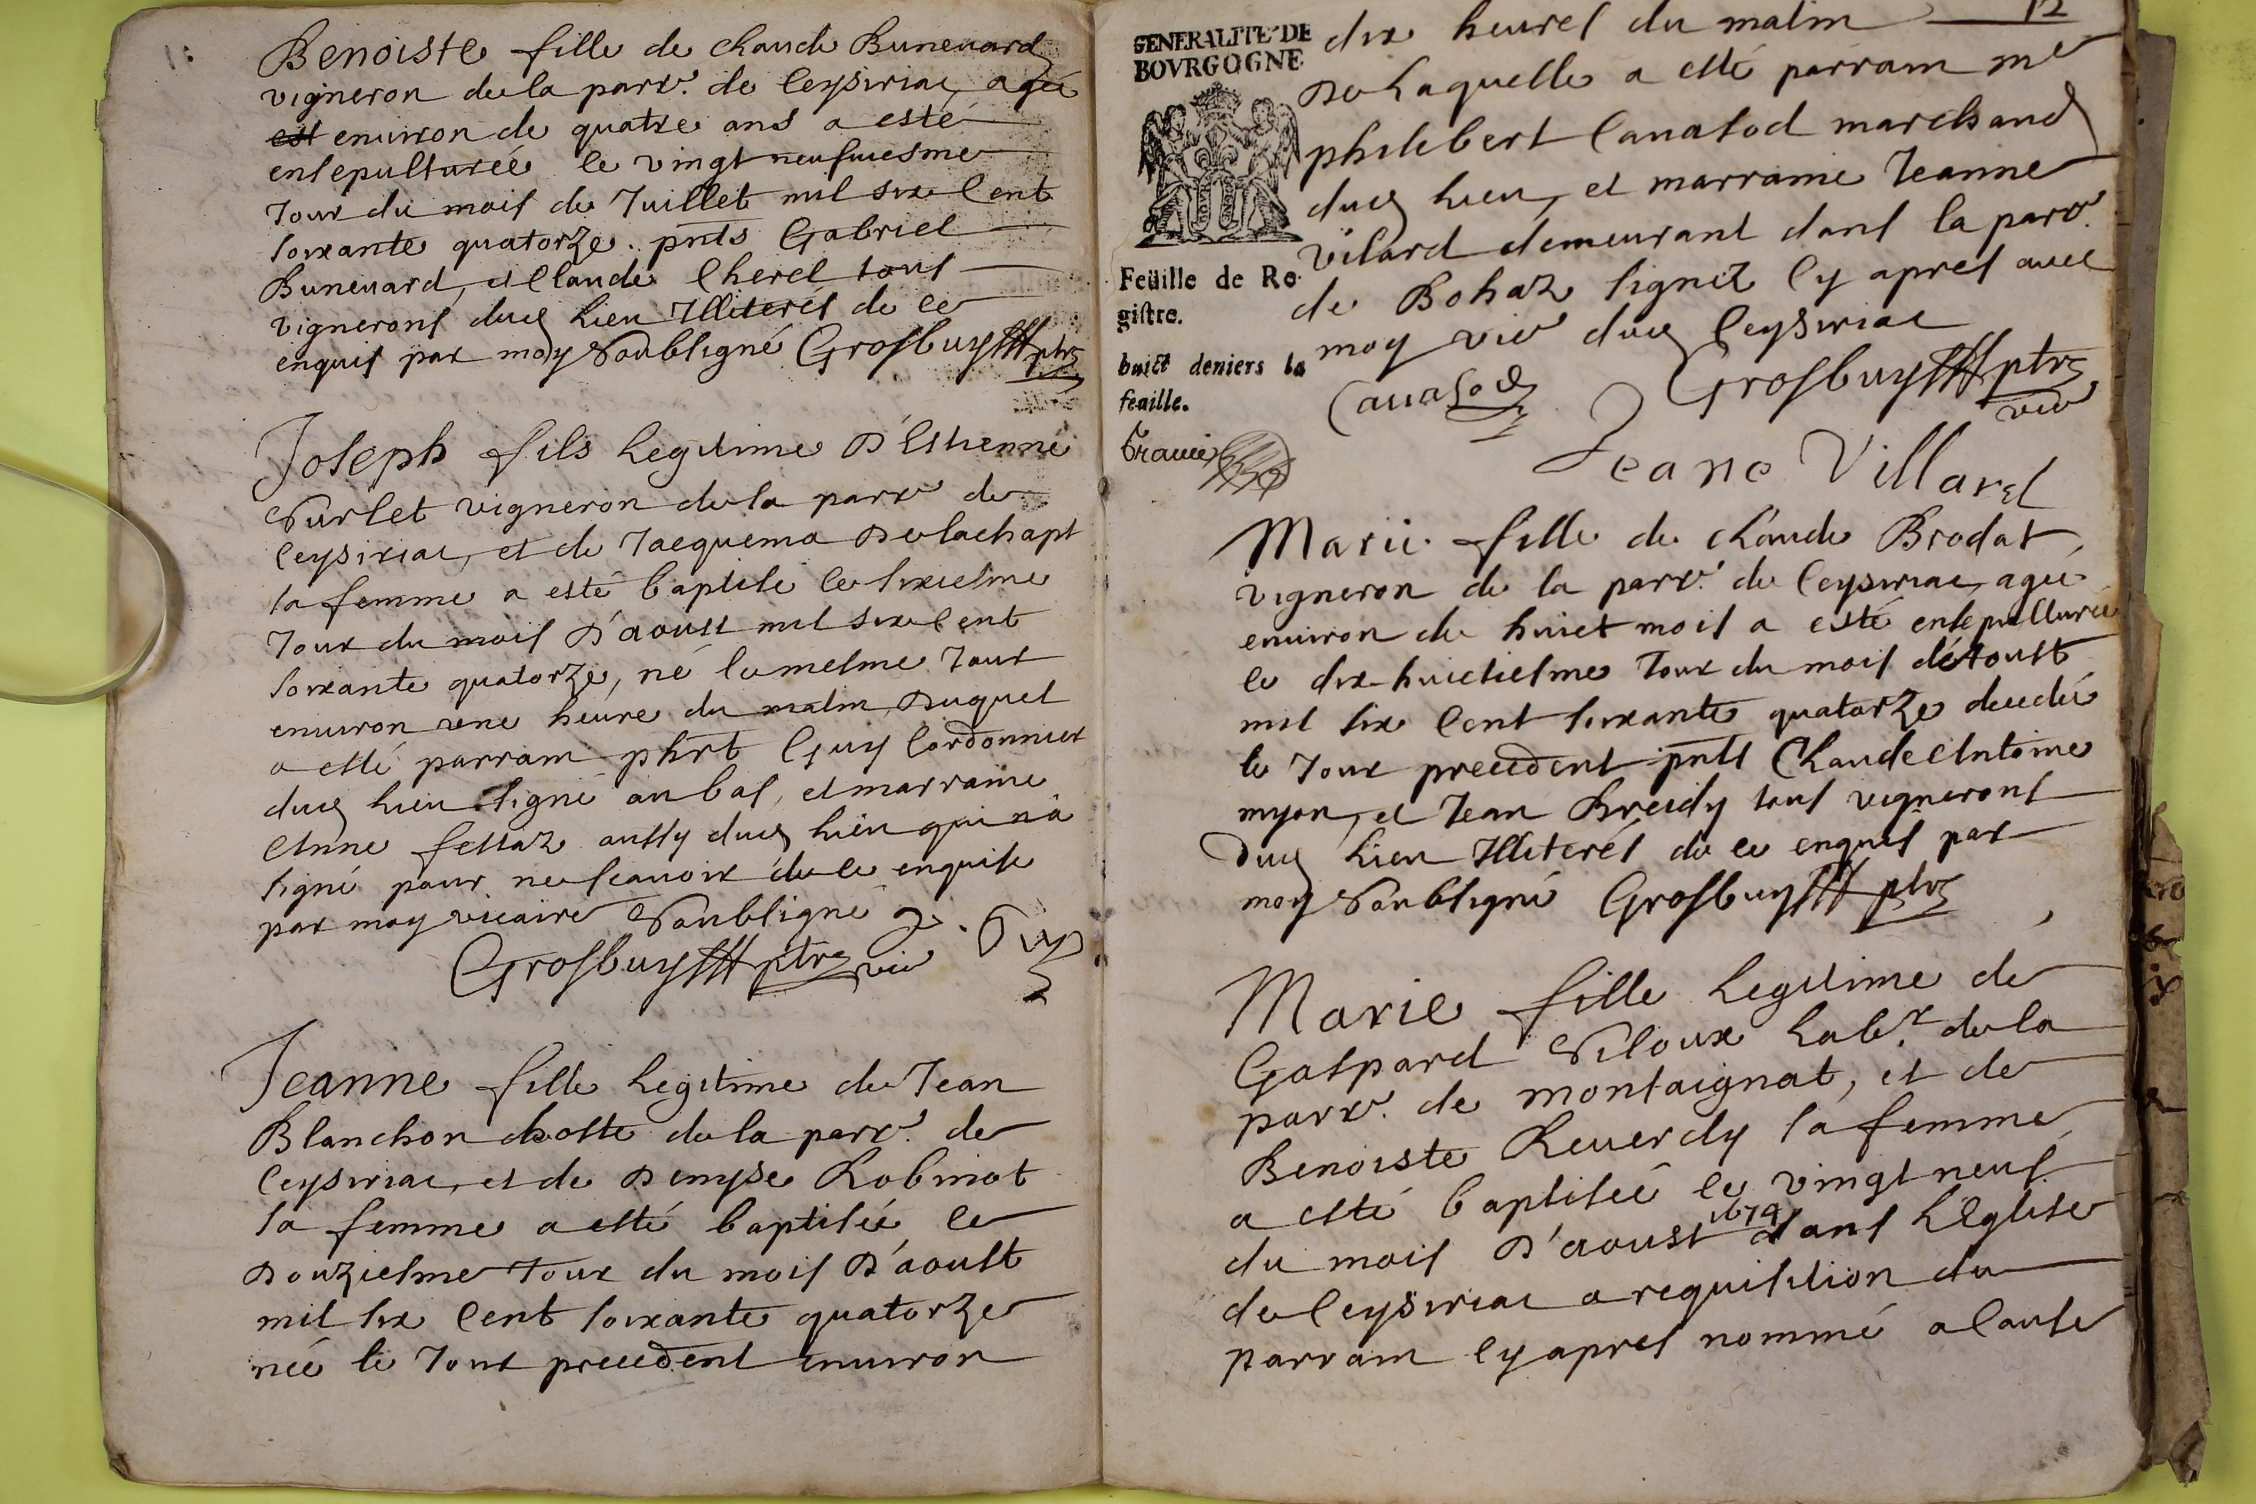 Benoiste fille de claude Buneuard
vigneron de la parr. de Ceysiria, agée
est enuiron de quatre ans a esté
ensepulturée le vingt neufuiesme
Jour du mois de Juillet mil six Cent
soixante quatorze. pnts Gabriel
Buneuard, et Claude Cherel tous
vignerons dud lieu Illiterés de ce
enquis par moy Soubsigné Grosbuy ptre
Joseph fils legitime D'Estienne
Surlet vigneron de la parr de
Ceysiriac, et de Jacquema Delachapt
sa femme a esté baptisé le sixiesme
Jour du mois D'aoust mil six Cent
soixante quatorze, né le mesme Jour
enuiron vne heure du matin Duquel
a esté parrain phrt Guy Cordonnier
dud lieu signé au bas, et marraine
Anne fettaz aussy dud lieu qui n'a
signé pour ne scauoir de ce enquise
par moy vicaire Soubsigné
Grosbuy ptre vic
Guy
Jeanne fille legitime de Jean
Blanchon hoste de la parr. de
Ceysiriac, et de Denyse Robinot
sa femme a esté baptisée le
Douziesme Jour du mois D'aoust
mil six Cent soixante quatorze
née le Jour precedent enuiron
12
GENERALITE DE
BOVRGOGNE
Feüille de Re-
gistre.
huict deniers la
feuille.
dix heures du matin
De Laquelle a esté parrain me
philebert Cauasod marchand
dud lieu, et marraine Jeanne
Vilard demeurant dans la parr.
de Bohaz signez Cy apres auec
moy vic dud Ceysiriac
Cauasod
Grosbuy ptre
vic
Jeane Villard
Marie fille de Claude Brodat,
vigneron de la parr. de Ceysiriac, agée
enuiron de huict mois a esté ensepulturée
le dix-huictiesme Jour du mois d'Aoust
mil six Cent soixante quatorze decedée
le Jour precedent pnts Claude Antoine
myon, et Jean Breidy tous vignerons
Dud lieu Illiterés de ce enquis par
moy Soubsigné Grosbuy ptre
Marie fille legitime de
Gaspard Siloux Labr. de la
parr. de montaignat, et de
Benoiste Reuerdy sa femme
a esté baptisée le vingt neuf
du mois D'aoust 1674 dans L'Eglise
de Ceysiriac a requisition du
parrain Cy apres nommé a Cause